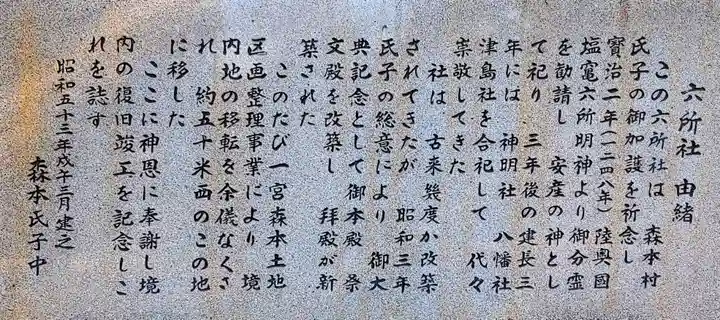 六所社 由緒
この六所社は 森本村
氏子の御加護を祈念し
寳治二年(一二四八年)陸奥國
塩竈六所明神より御分霊
を勧請し 安産の神とし
て祀り 三年後の建長三
年には 神明社 八幡社
津島社を合祀して 代々
崇敬してきた
社は 古来幾度か改築
されてきたが 昭和三年
氏子の総意により 御大
典記念として御本殿 祭
文殿を改築し 拝殿が新
築された
このたび一宮森本土地
区画整理事業により 境
内地の移転を余儀なくさ
れ 約五十米西のこの地
に移した
ここに神恩に奉謝し境
内の復旧竣工を記念しこ
れを誌す
昭和五十三年戊午三月建之
森本氏子中